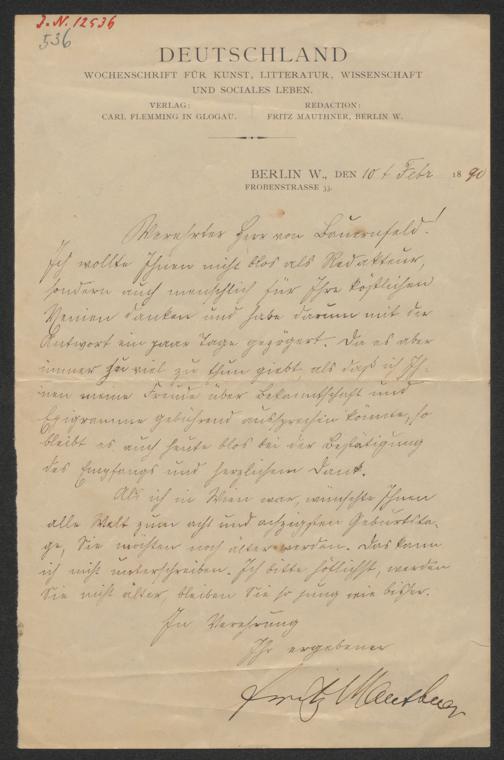 J. N. 12536
536
DEUTSCHLAND
WOCHENSCHRIFT FÜR KUNST, LITTERATUR, WISSENSCHAFT
UND SOCIALES LEBEN.
VERLAG:
CARL FLEMMING IN GLOGAU.
REDACTION:
FRITZ MAUTHNER, BERLIN W.
BERLIN W., DEN 10t Febr 1890
FROBENSTRASSE 33.
Verehrter Herr von Bauernfeld!
Ich wollte Ihnen nicht blos als Redakteur,
sondern auch menschlich für Ihre köstlichen
Xenien danken und habe darum mit der
Antwort ein paar Tage gezögert. Da es aber
immer zu viel zu thun giebt, als daß ich Ih-
nen meine Freude über Bekanntschaft und
Epigramme gebührend aussprechen könnte, so
bleibt es auch heute blos bei der Bestätigung
des Empfangs und herzlichem Dank.
Als ich in Wien war, wünschte Ihnen
alle Welt zum acht und achzigsten Geburtsta-
ge, Sie möchten noch älter werden. Das kann
ich nicht unterschreiben. Ich bitte höflichst, werden
Sie nicht älter, bleiben Sie so jung wie bisher.
In Verehrung
Ihr ergebener
Fritz Mauthner